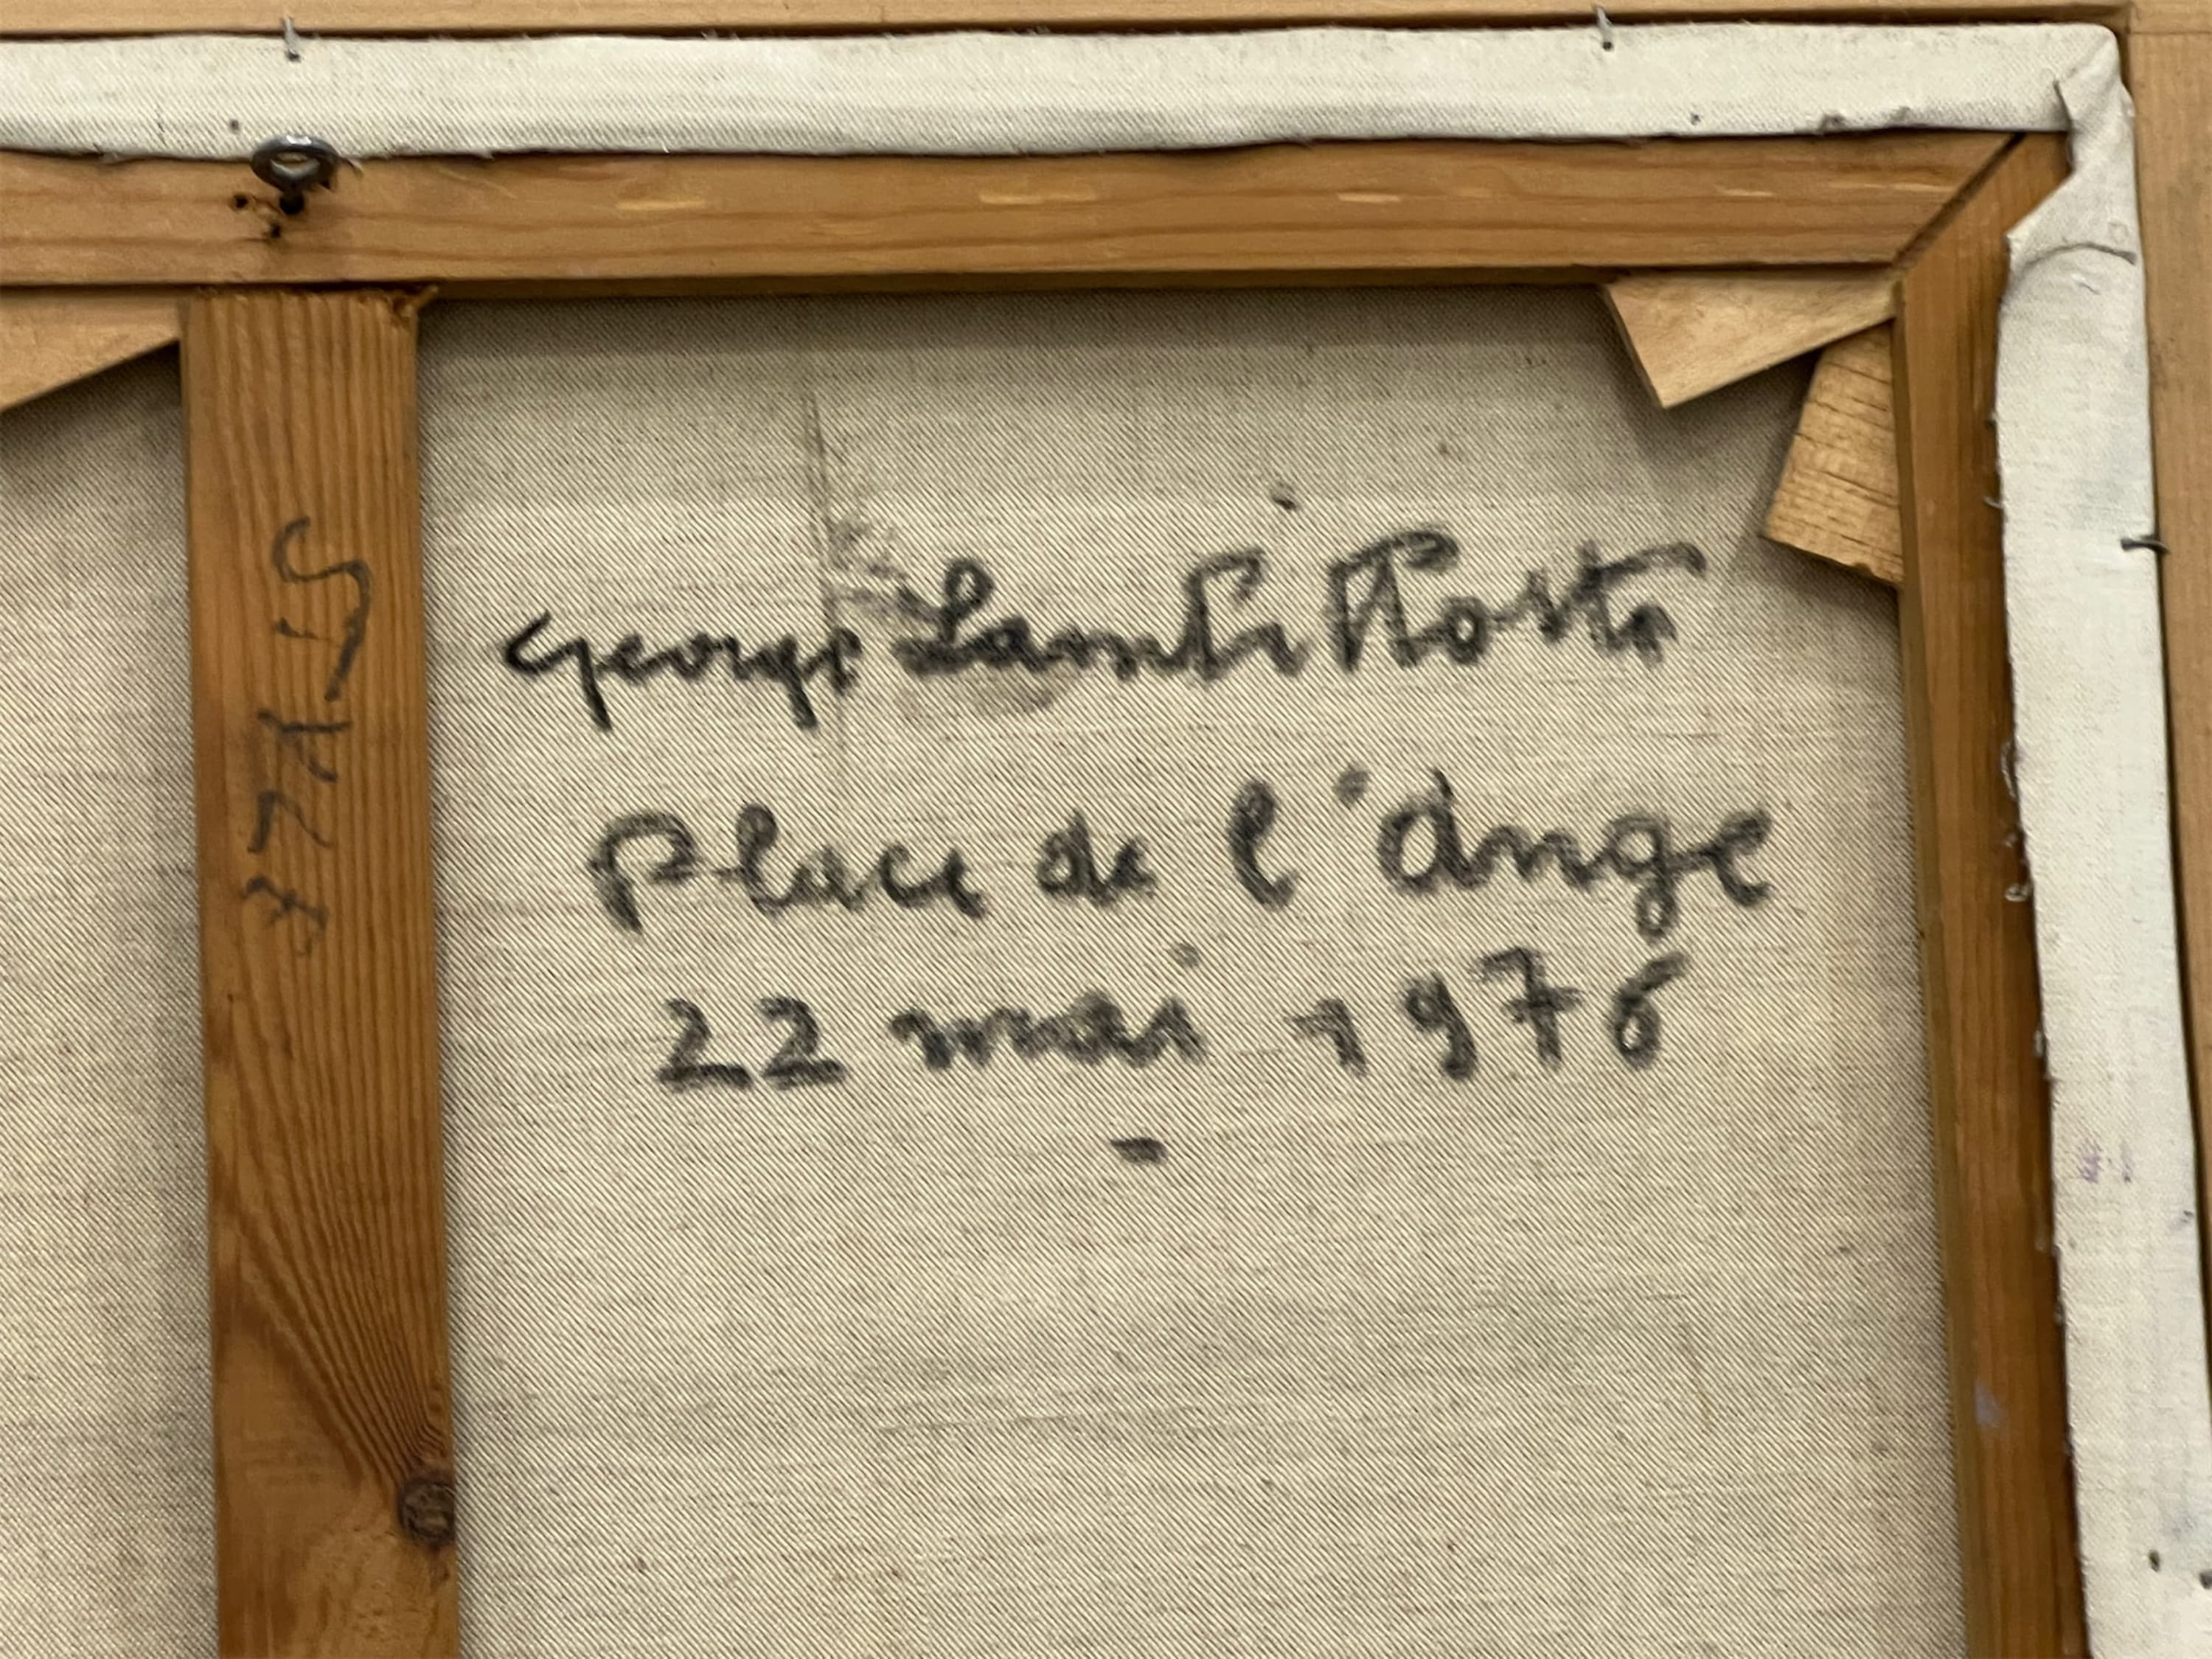 George Lambillotte
Place de l'Ange
22 mai 1976